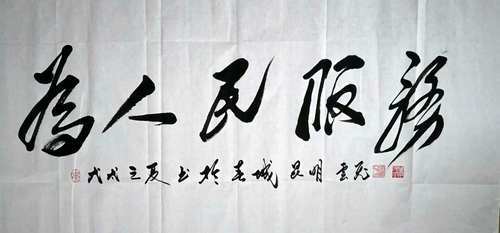 為人民服務
戊戌立夏書於春城昆明雲飛